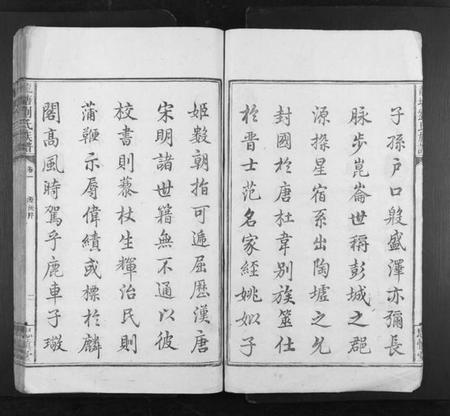 子孫戶口殷盛澤亦彌長
脉步崑崙世稱彭城之郡
源探星宿系出陶墟之允
封國於唐杜韋別族筮仕
於晋士范名家經姚姒子
姬数朝指可遍屈歷漢唐
宋明諸世籍無不通以彼
校書則藜杖生輝治民則
蒲鞭示辱偉績或標於麟
閣高風時駕乎鹿車子璥
劉氏族譜
卷一